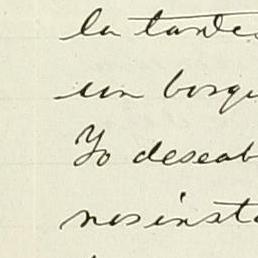 la tardes
un bosqu
Yo deseab
nos insta